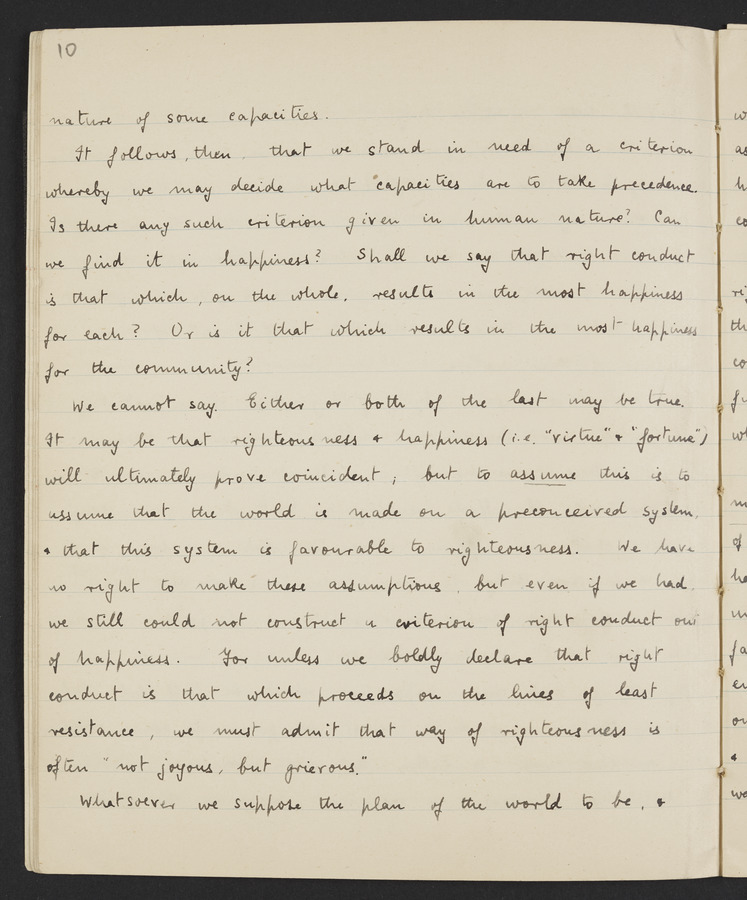 10
nature of some capacities.
It follows, then, that we stand in need of a criterion
whereby we may decide what capacities are to take precedence.
Is there any such criterion given in human nature? Can
we find it in happiness? Shall we say that right conduct
is that which, on the whole, results in the most happiness
for each? Or is it that which results in the most happiness
for the community?
We cannot say. Either or both of the last may be true.
It may be that righteousness & happiness (i.e. "virtue" & "fortune")
will ultimately prove coincident; but to assume this is to
assume that the world is made on a preconceived system,
& that this system is favourable to righteousness. We have
no right to make these assumptions, but even if we had
we still could not construct a criterion of right conduct out
of happiness. For unless we boldly declare that right
conduct is that which proceeds on the lines of least
resistance, we must admit that way of righteousness is
often "not joyous, but grievous."
Whatsoever we suppose the plan of the world to be, &